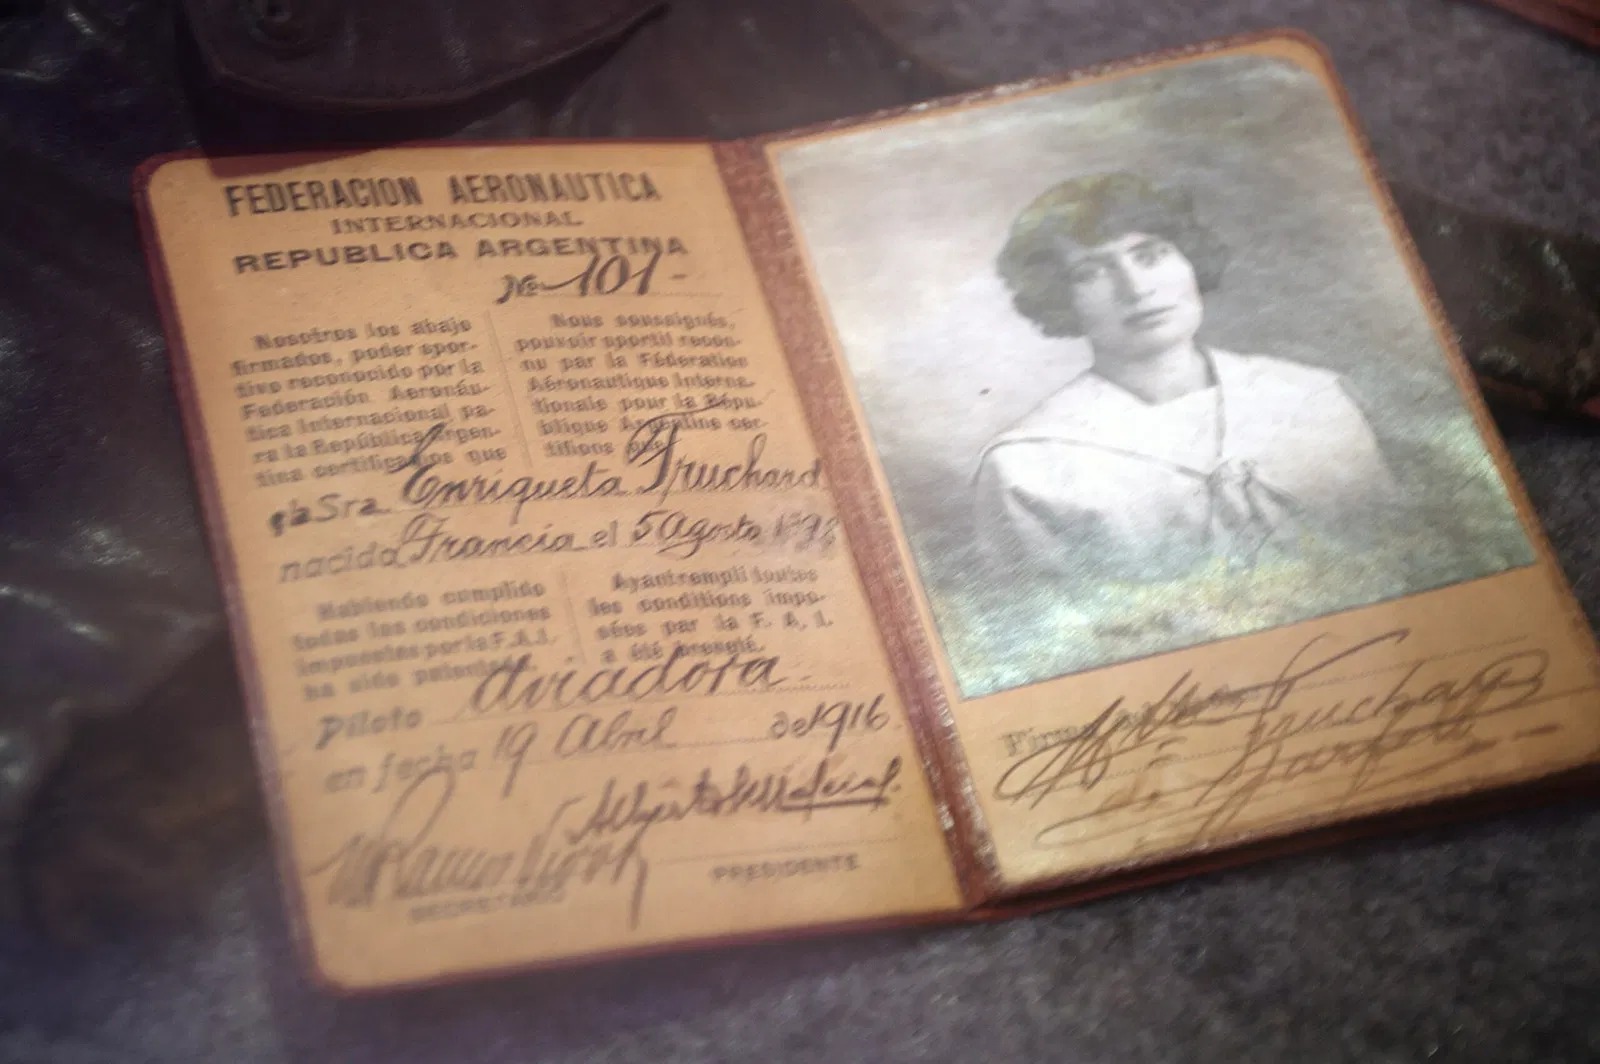 FEDERACION AERONAUTICA
INTERNACIONAL
REPUBLICA ARGENTINA
No 101-
Nosotros los abajo
firmados, poder spor-
tivo reconocido por la
Federación Aeronáu-
tica Internacional pa-
ra la República Argen-
tina certificamos que
Nous soussignés,
pouvoir sportif recon-
nu par la Féderation
Aéronautique Interna-
tionale pour la Répu-
blique Argentine cer-
tifions que
la Sra Enriqueta Truchard
nacida Francia el 5 Agosto
Habiendo cumplido
todas las condiciones
impuestas por la F.A.I.
ha sido patentado.
Ayant rempli toutes
les conditions impo-
sées par la F. A. I.
a été breveté.
Piloto aviadora
en fecha 19 Abril de 1916
SECRETARIO
PRESIDENTE
Firma
Truchard